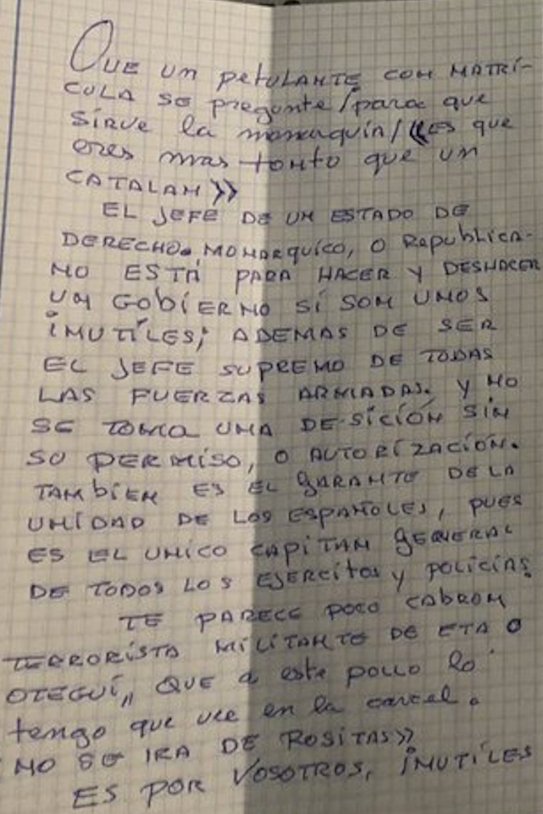 QUE UM PETULANTE COM MATRÍ-
CULA SE pregunte/para que
SIRVE la monarquía/((es que
eres mas tonto que um
CATALAM»
EL JEFE DE UM ESTADO DE
DERECHO, MOMARQUICO, O REPUBLICA-
MO ESTÁ PARA HACER Y DESHACER
UM GOBIERMO SÍ SOM UMOS
IMUTILES; ADEMAS DE SER
EL JEFE SUPREMO DE TODAS
LAS FUERZAS ARMADAS. Y MO
SE TOMA UMA DE-SICIÓM SIM
SU PERMISO, O AUTORIZACIÓM.
TAMBIEM ES EL GARAMTE DE LA
UMIDAD DE LOS ESPAÑOLES, PUES
ES EL UMICO CAPITAM GEMERAL
DE TODOS LOS EJERCITOS Y POLICIAS.
TE PARECE POCO CABROM
TERRORISTA MILITAMTE DE ETA O
OTEGUÍ,, QUE a este pollo lo
tengo que ver en la carcel.
MO SE IRA DE ROSITAS»
ES POR VOSOTROS, IMUTILES